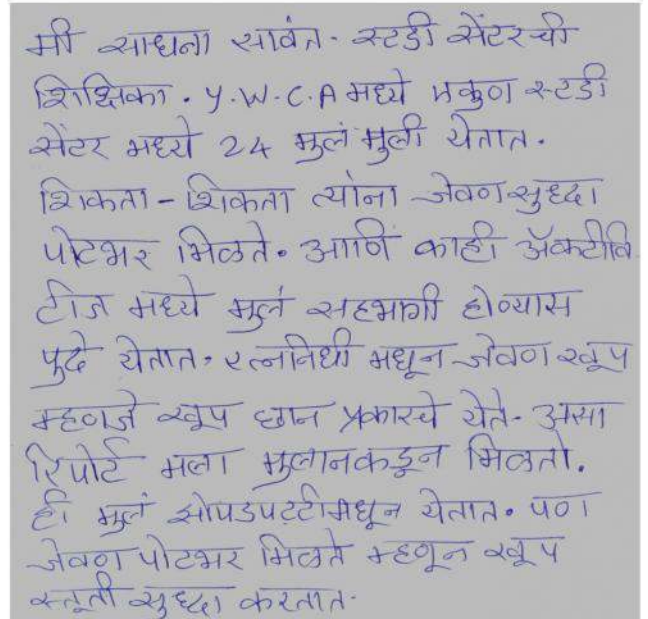 मी साधना सावंत. स्टडी सेंटरची
शिक्षिका. Y.W.C.A मध्ये एकुण स्टडी
सेंटर मध्ये 24 मुलं मुली येतात.
शिकता - शिकता त्यांना जेवण सुध्दा
पोटभर मिळते. आणि काही ॲक्टीवि
टीज मध्ये मुलं सहभागी होण्यास
पुढे येतात. रत्ननिधी मधून जेवण खूप
म्हणजे खूप छान प्रकारचे येते. असा
रिपोर्ट मला मुलानकडून मिळतो.
ही मुलं झोपडपट्टीमधून येतात. पण
जेवण पोटभर मिळते म्हणून खूप
स्तूती सुध्दा करतात.